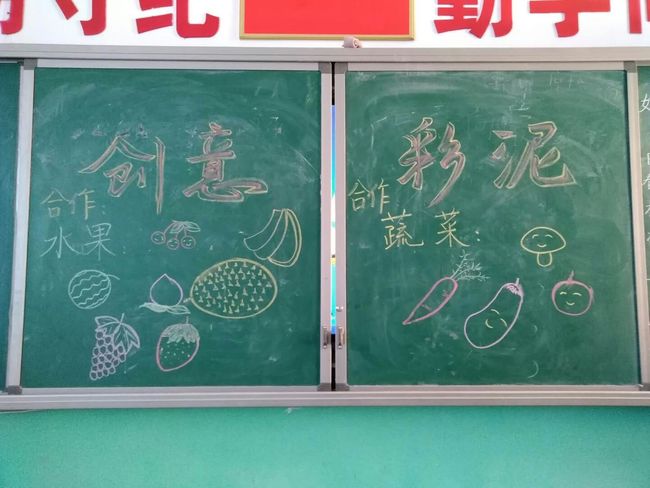 守纪
勤学
创意
彩泥
合作:
水果:
合作
蔬菜: